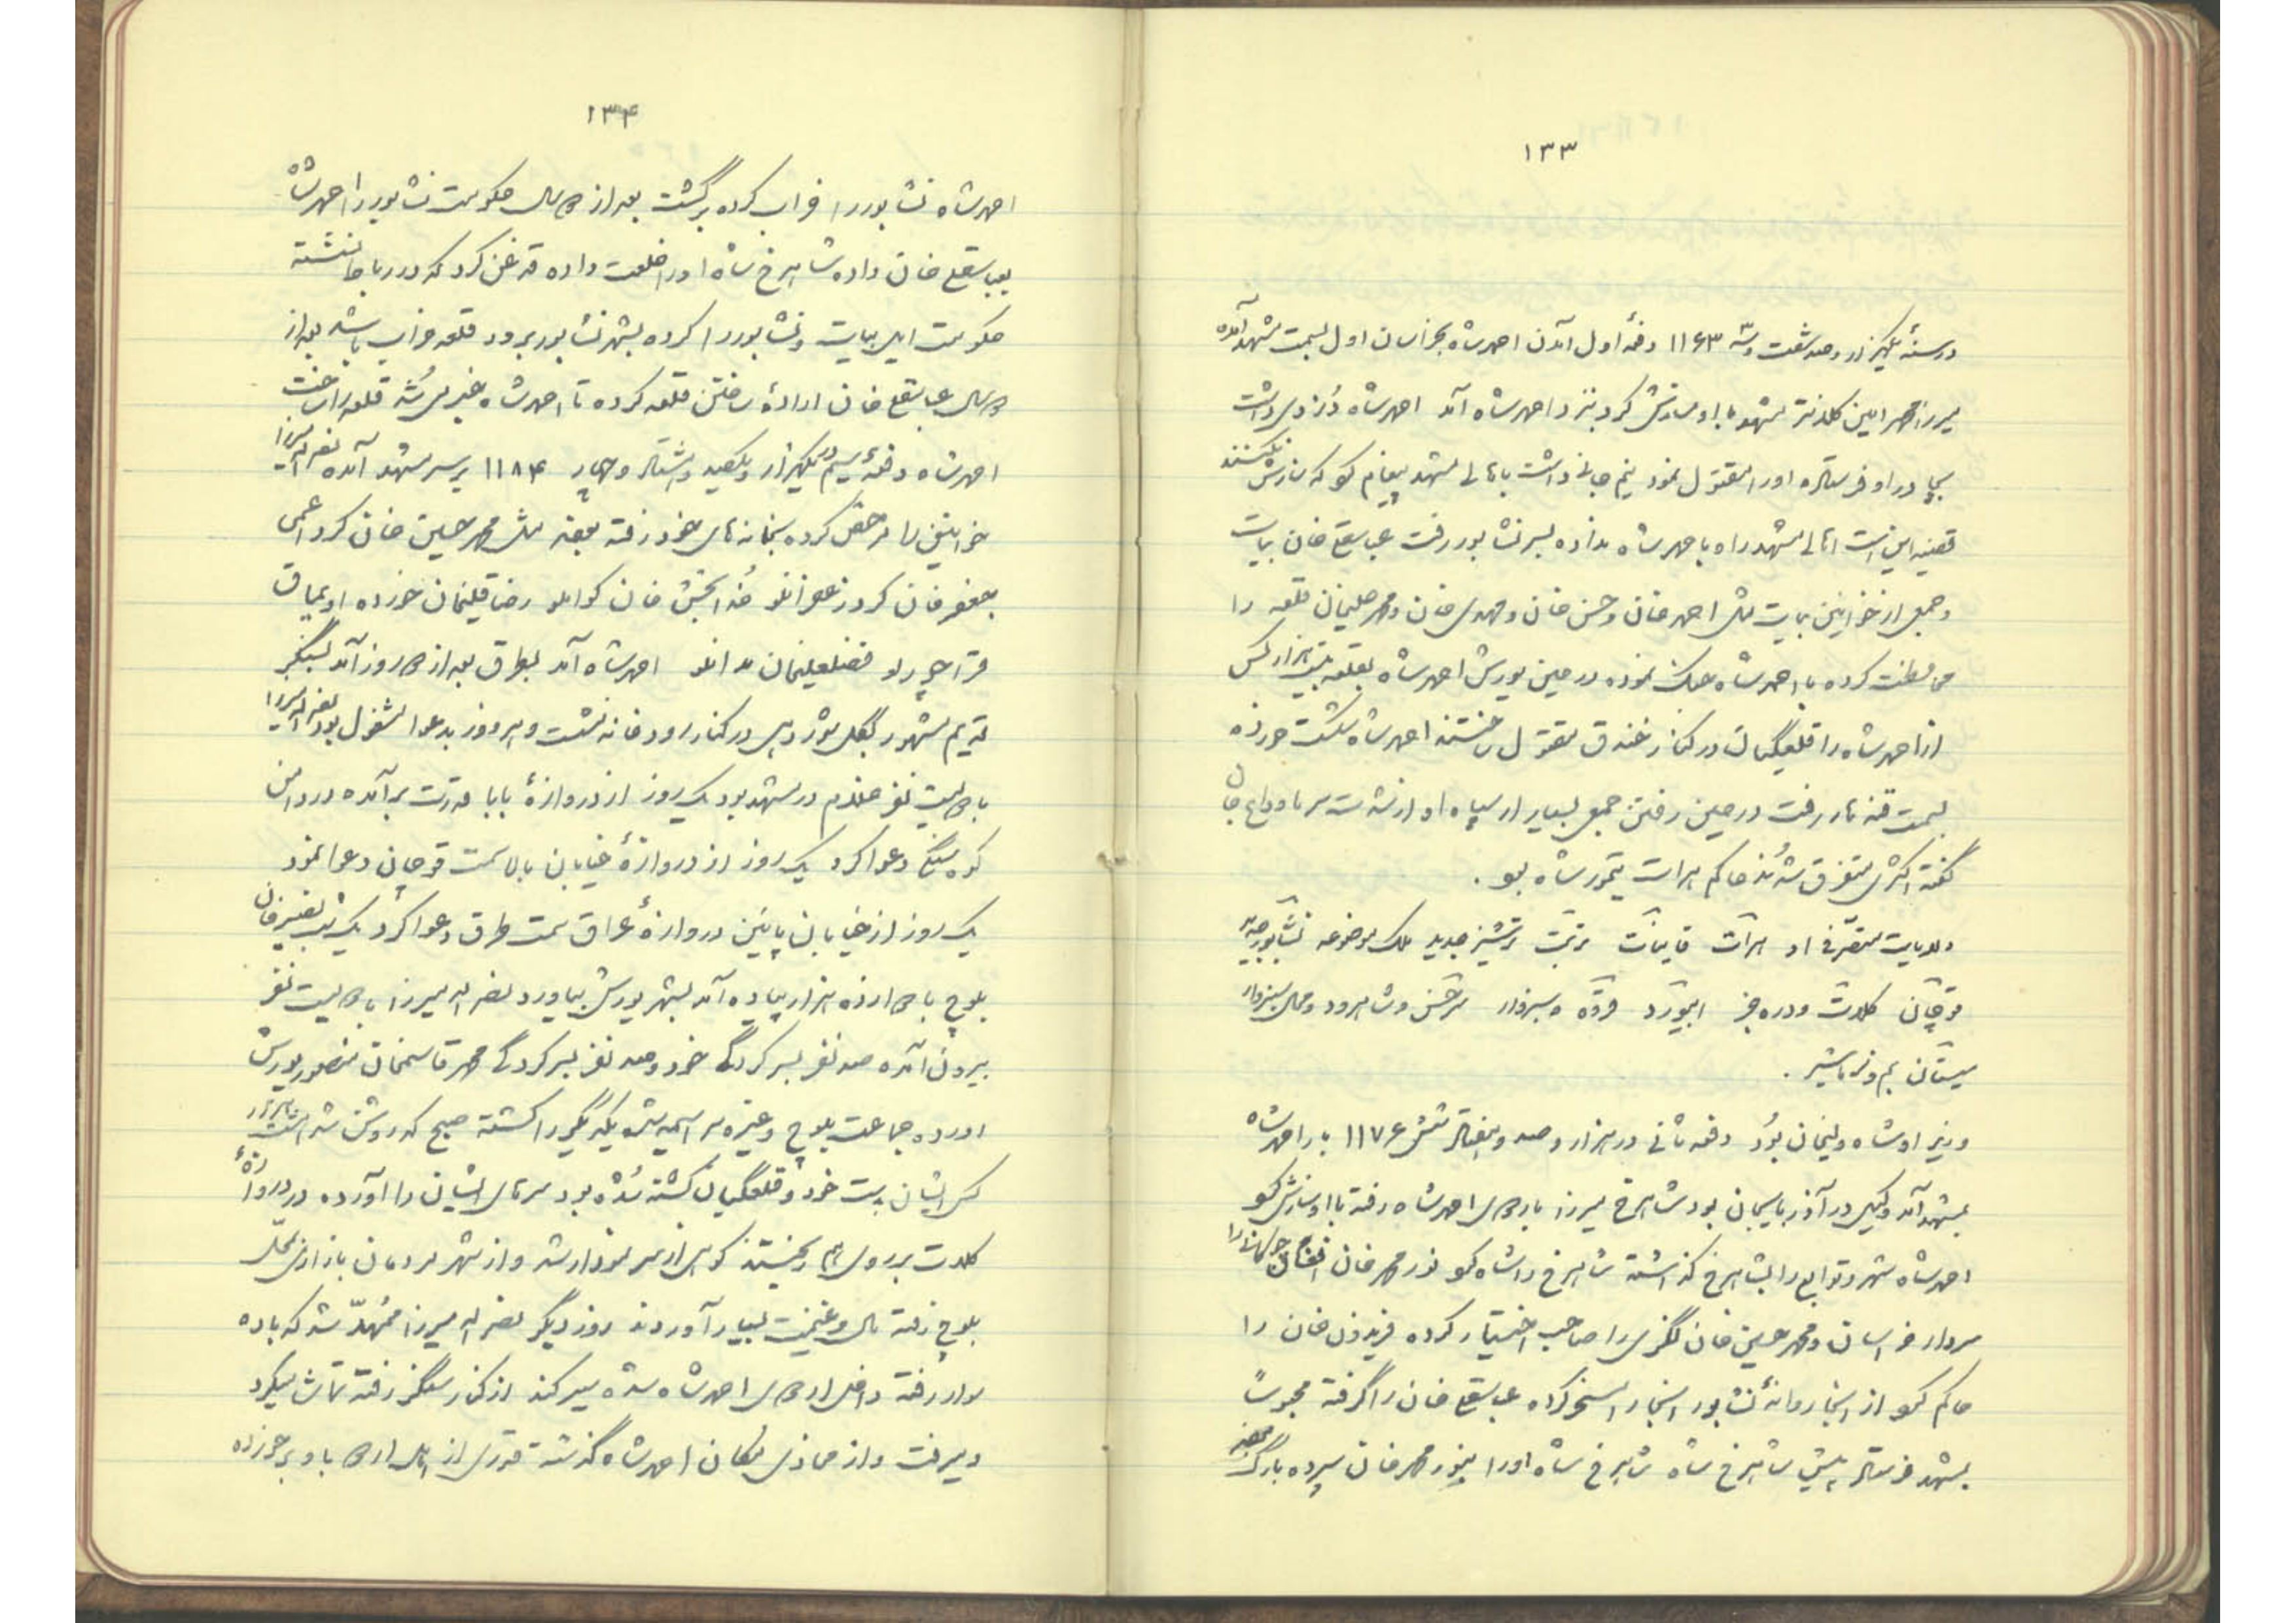 ۱۳۳
در سنهٔ یکهزار و صد شصت و سه ۱۱۶۳ دفعهٔ اول آمدن احمد شاه بخراسان اول بسمت مشهد آمده
میرزا محمد امین کلانتر مشهد با او سازش کرد بنزد احمد شاه آمد احمد شاه دزدی داشت
بچادر او فرستاده او را مقتول نمود نیم جانی داشت باهالی مشهد پیغام کو که سازش نکنند
قضیه این است اهالی مشهد راه باحمد شاه نداده بسر نشابور رفت عباسقلی خان بیات
و جمعی از خوانین بیات مثل احمد خان و حسن خان و مهدی خان و محمد صلیخان قلعه را
محافظت کرده با احمد شاه جنگ نموده در حین یورش احمد شاه بقلعه هزار کس
از احمد شاه را قلعگیان در کنار خندق مقتول ساختند احمد شاه شکست خورده
بسمت قندهار رفت در حین رفتن جمعی بسیار از سپاه او از شدت سرما وداع جان
گفته اکثری متفرق شدند حاکم هرات تیمور شاه بو .
ولایات متصرفی او هرات قاینات تربت ترشیز جدید ملک موضوعه نشابور
قوچان کلات و دره جز ابیورد سبزوار سرخس و شاهرود و محال سبزوار
سیستان بم و نرماشیر .
وزیر او شاه ولیخان بود دفعه ثانی در هزار و صد و هفتاد شش ۱۱۷۶ باز احمد شاه
بمشهد آمد وکیل در آذربایجان بود شاهرخ میرزا باردوی احمد شاه رفته با او سازش کو
احمد شاه شهر و توابع را بشاهرخ گذاشته شاهرخ را شاه کو نور محمد خان افغان
سردار خراسان و محمد حسین خان لگزی را صاحب اختیار کرده فریدون خان را
حاکم کو از اینجا روانهٔ نشابور اینجا را مسخر کرده عباسقلی خان را گرفته محبوساً
بمشهد فرستاد پیش شاهرخ شاه شاهرخ شاه او را بنور محمد خان سپرده
۱۳۴
احمد شاه نشابور را خراب کرده برگشت بعد از سال حکومت نشابور را احمد شاه
بعباسقلی خان داده شاهرخ شاه او را خلعت داده قدغن کرد که در رباط نشسته
حکومت ایل بیات و نشابور را کرده بشهر نشابور نرود قلعه خراب باشد بعد از
سال عباسقلی خان ارادهٔ ساختن قلعه کرده تا احمد شاه خبر می شد قلعه را ساخت
احمد شاه دفعهٔ سیم در یکهزار و یکصد و هشتاد و چهار ۱۱۸۴ بر سر مشهد آمده نصراله میرزا
خوانین را مرخص کرده بخانه های خود رفته بعضی مثل محمد حسین خان کرد اعمی
جعفر خان کرد زعفرانلو خدابخش خان کوانلو رضا قلیخان خورده اویماق
قراچورلو فضلعلیخان احمد شاه آمد بطرق بعد از روز آمد بسنگر
قدیم مشهور بگل در کنار رودخانه نشست و هر روز بدعوا مشغول بود نصراله میرزا
با دویست نفر ملازم در مشهد بود یک روز از دروازهٔ بابا قدرت برآمده در دامن
کوه سنگی دعوا کرد یک روز از دروازهٔ خیابان بالا سمت قوچان دعوا نمود
یک روز از خیابان پائین دروازهٔ عراق سمت طرق دعوا کرد یک شب نصیر خان
بلوچ با دوازده هزار پیاده آمد بشهر یورش بیاورد نصراله میرزا با دویست نفر
بیرون آمده صد نفر بسرکردگی خود و صد نفر بسرکردگی محمد قاسمخان منصور یورش
آورده جماعت بلوچ و غیره سراسیمه شده یکدیگر را کشته صبح که روشن شد هشت هزار
کس ایشان بدست خود و قلعگیان کشته شده بود سرهای ایشان را آورده در دروازهٔ
کلات بر روی هم ریختند کوهی از سر نمودار شد و از شهر مردمان بازاری بمحل
بلوچ رفته مال و غنیمت بسیار آوردند روز دیگر نصراله میرزا متعهد شد که باده
سوار رفته داخل اردوی احمد شاه شده سیر کند از کنار سنگر رفته تماشا میکرد
و میرفت و از محاذی مکان احمد شاه گذشته قدری از اهل اردو باو برخورده